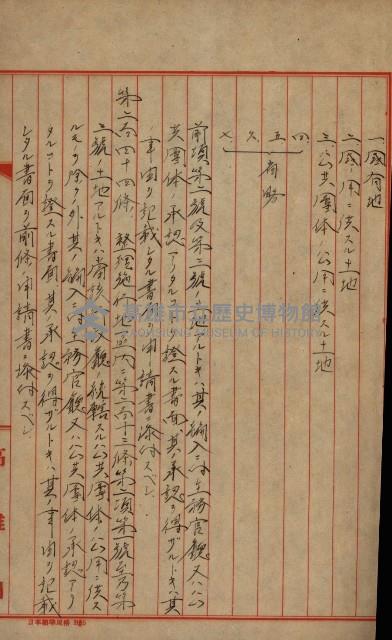 一、國有地
二、國ノ用ニ供スル土地
三、公共團體ノ公用ニ供スル土地
四、五、六、七、省略
前項第一號及第二號ノ土地アルトキハ其ノ編入ニ付主務官廳又ハ公
共團体ノ承認アリタルコトヲ證スル書面、其ノ承認ヲ得ザルトキハ其
ノ事由ヲ記載シタル書面ヲ申請書ニ添付スベシ
第二百四十四條 整理施行地區內ニ第二百四十三條第一項第一號至乃第
三號ノ土地アルトキハ當該官廳ノ統轄スル公共團体ノ公用ニ供ス
ルモノヲ除クノ外其ノ編入ニ付主務官廳又ハ公共團体ノ承認アリ
タルコトヲ證スル書面、其ノ承認ヲ得ザルトキハ其ノ事由ヲ記載
シタル書面ヲ前條ノ申請書ニ添付スベシ
高雄市立歷史博物館
KAOHSIUNG MUSEUM OF HISTORY
高雄
日本標準規格 B4